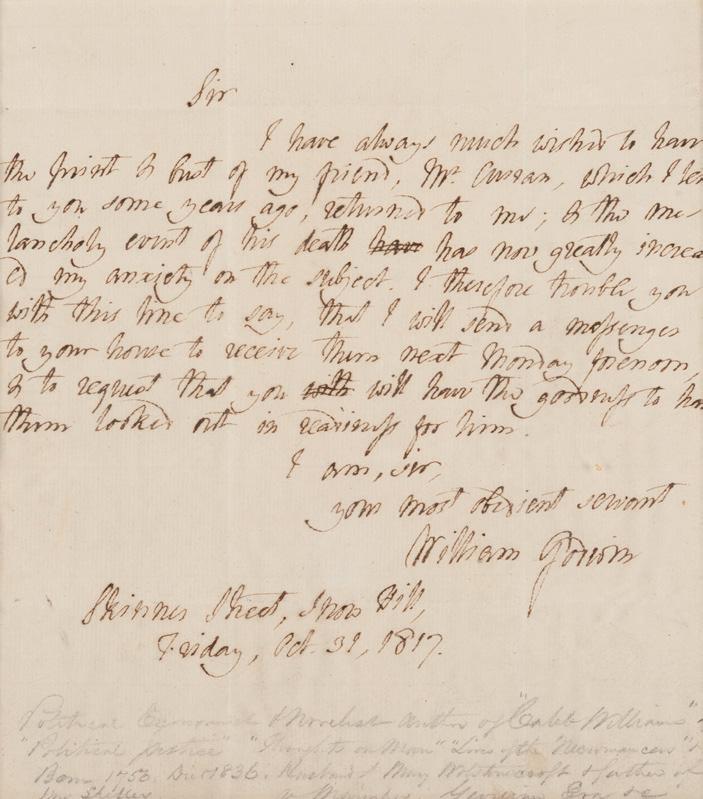 Sir
I have always much wished to have
the print & bust of my friend, Mr. Curran, which I le
to you some years ago, returned to me; & the me-
lancholy event of his death has now greatly increa
ed my anxiety on the subject. I therefore trouble you
with this line to say, that I will send a messenger
to your house to receive them next Monday forenoon,
& to request that you will have the goodness to ha
them looked out in readiness for him.
I am, sir,
your most obedient servant.
William Godwin
Skinner Street, Snow Hill,
Friday, Oct. 31, 1817.
Political Economist & Novelist author of "Caleb Williams"
"Political Justice" "Thoughts on Man" "Lives of the Necromancers" &
Born 1756. Died 1836. Husband of Mary Wolstonecroft & father of
Mrs Shelley